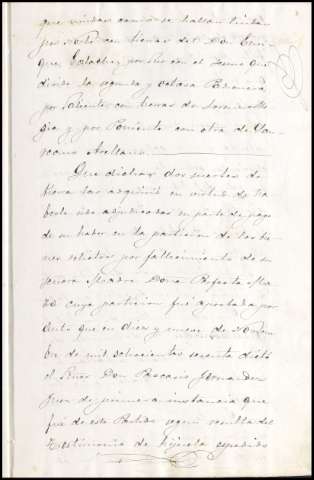 que vendan camino se hallan linda
por Norte con tierras del Don Enri
que Gonzalez, por Sur con el
divide la segunda y octava
por Oriente con tierras de Lorenzo
gia y por Poniente con otra de
cano Arellano
Que dichas dos suertes de
tierra las adquirió en virtud de ha
berle sido adjudicadas en parte de pago
de su haber en la particion de los bie
nes relictos por fallecimiento de su
señora Madre Doña
cuya particion fué aprobada por
auto que en diez y nueve de Novem
bre de mil ochocientos sesenta dictó
el Señor Don Pascacio Fernandez
Juez de primera instancia que
fué de este Partido segun resulta del
testimonio de hijuela espedido